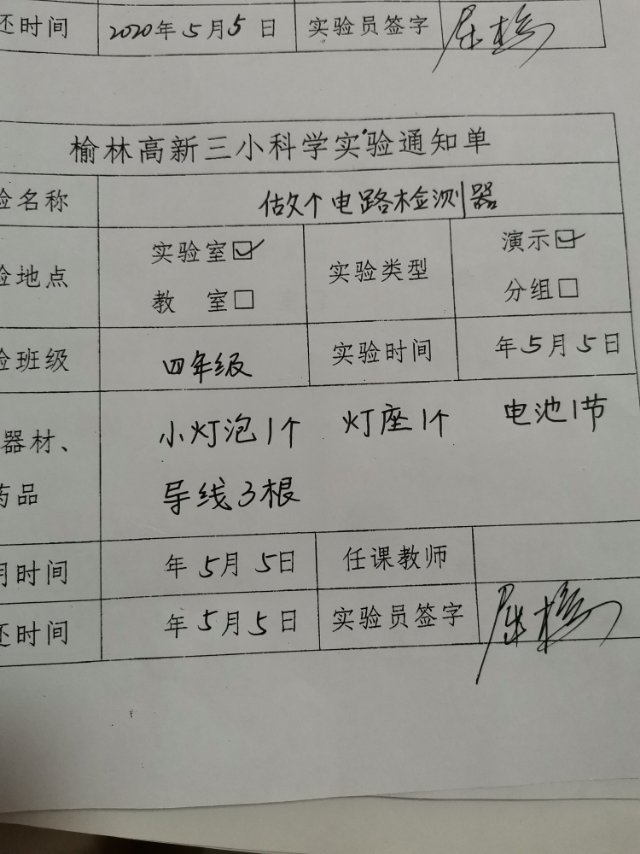 还时间 2020年5月5日 实验员签字
榆林高新三小科学实验通知单
验名称 做个电路检测器
验地点 实验室☑ 教 室□ 实验类型 演示☑ 分组□
验班级 四年级 实验时间 年5月5日
器材、 小灯泡1个 灯座1个 电池1节
药品 导线3根
用时间 年5月5日 任课教师
还时间 年5月5日 实验员签字